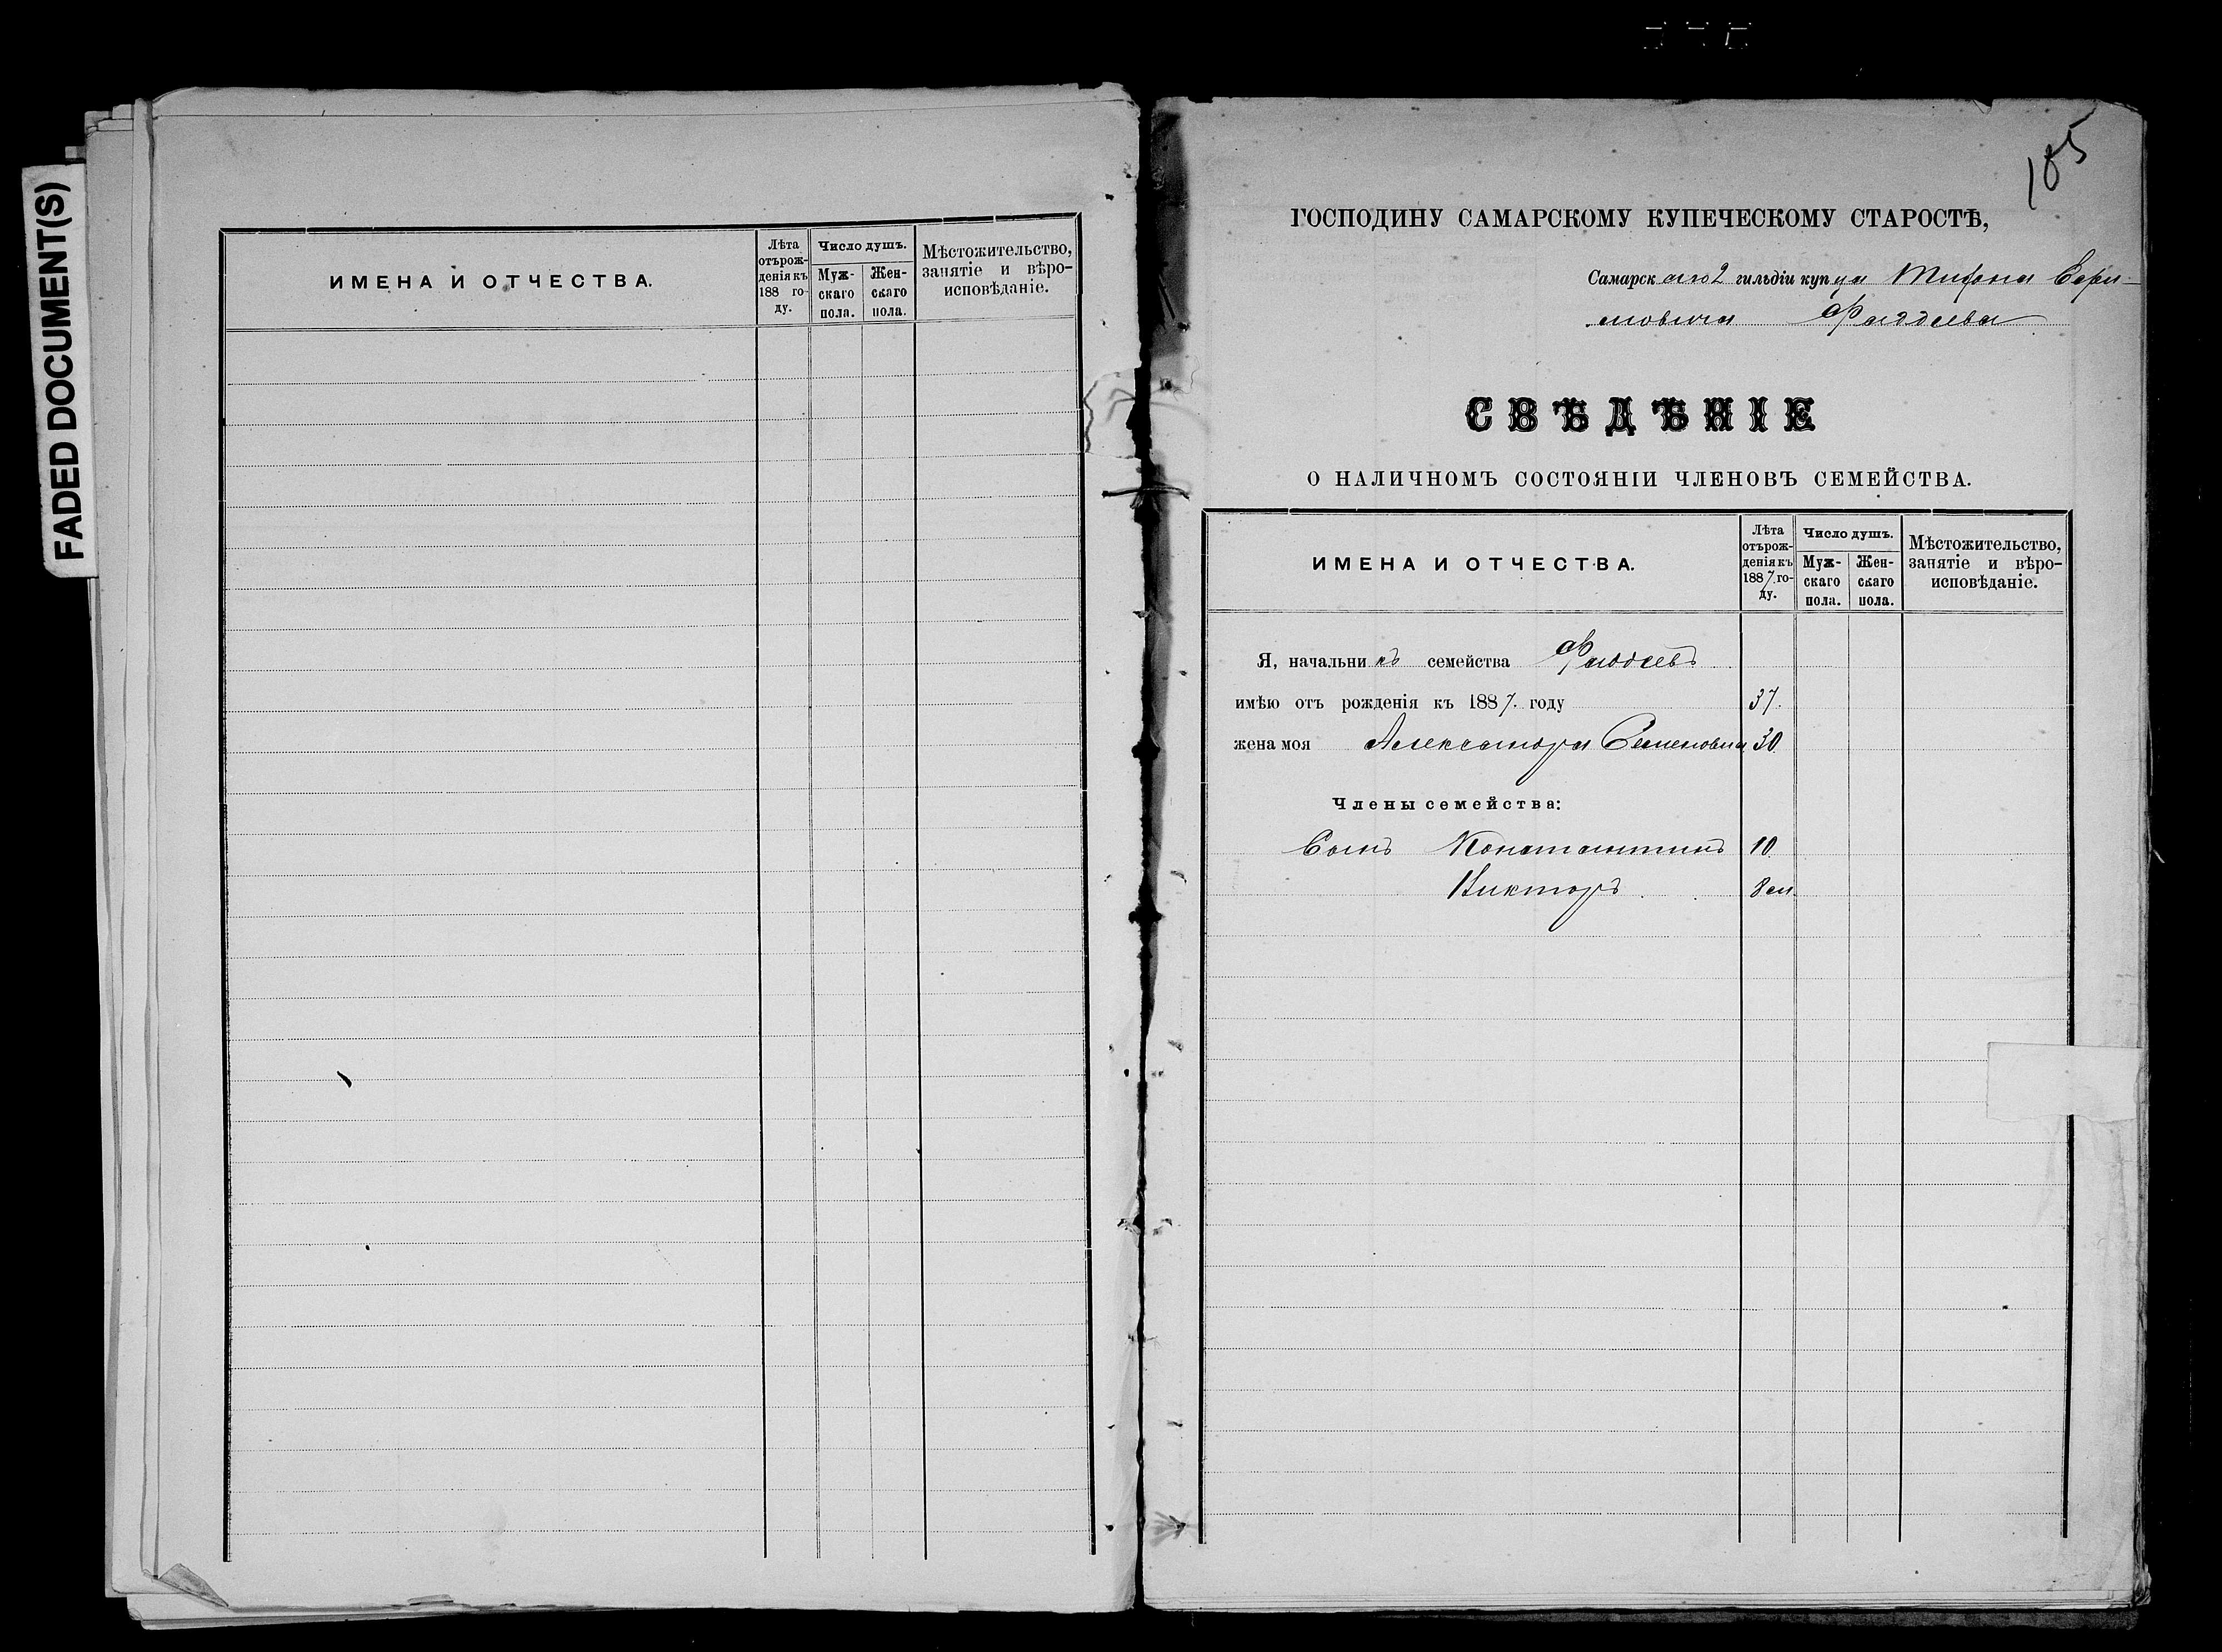 FADED DOCUMENT(S)
ИМЕНА И ОТЧЕСТВА.
Лѣта отърожденія къ 188 году.
Число душъ.
Мужскаго пола.
Женскаго пола.
Мѣстожительство, занятіе и вѣроисповѣданіе.
185
ГОСПОДИНУ САМАРСКОМУ КУПЕЧЕСКОМУ СТАРОСТѢ,
Самарскаго 2 гильдіи купца
Фаддеева
СВѢДѢНІЕ
О НАЛИЧНОМЪ СОСТОЯНІИ ЧЛЕНОВЪ СЕМЕЙСТВА.
ИМЕНА И ОТЧЕСТВА.
Лѣта отърожденія къ 1887. году.
Число душъ.
Мужскаго пола.
Женскаго пола.
Мѣстожительство, занятіе и вѣроисповѣданіе.
Я, начальникъ семейства Фаддеевъ
имѣю отъ рожденія къ 1887. году 37.
жена моя Александра Семеновна 30
Члены семейства:
Сынъ Константинъ 10
Викторъ 8 м.